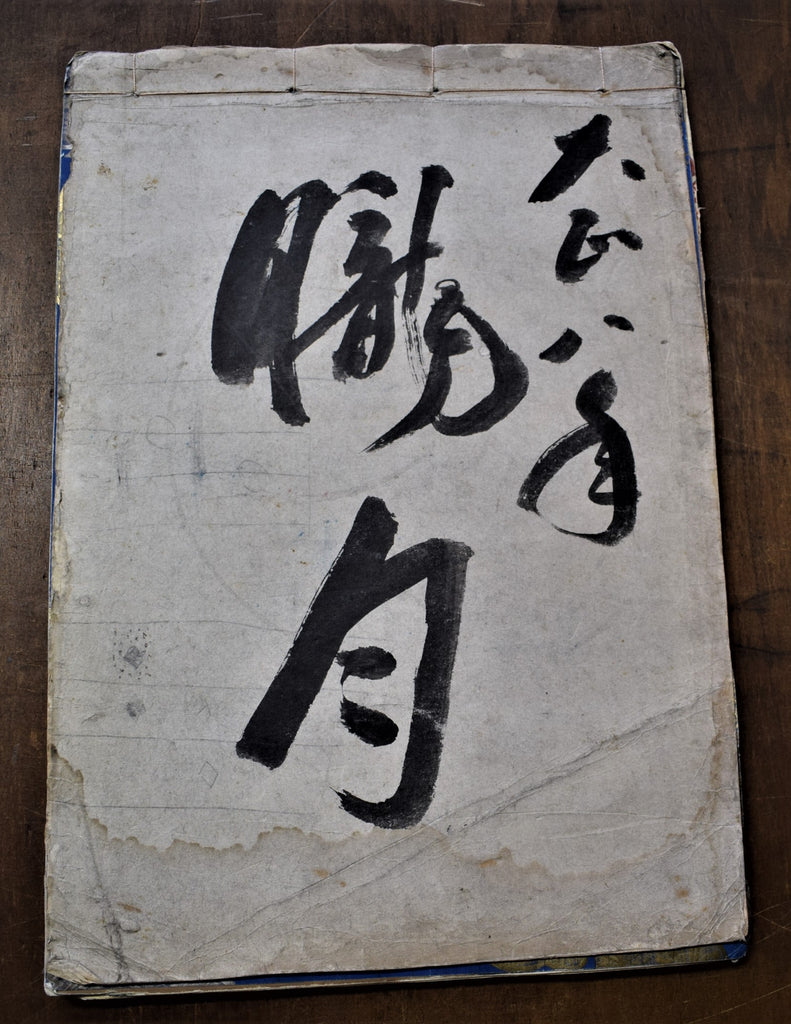 大正八年
朧月